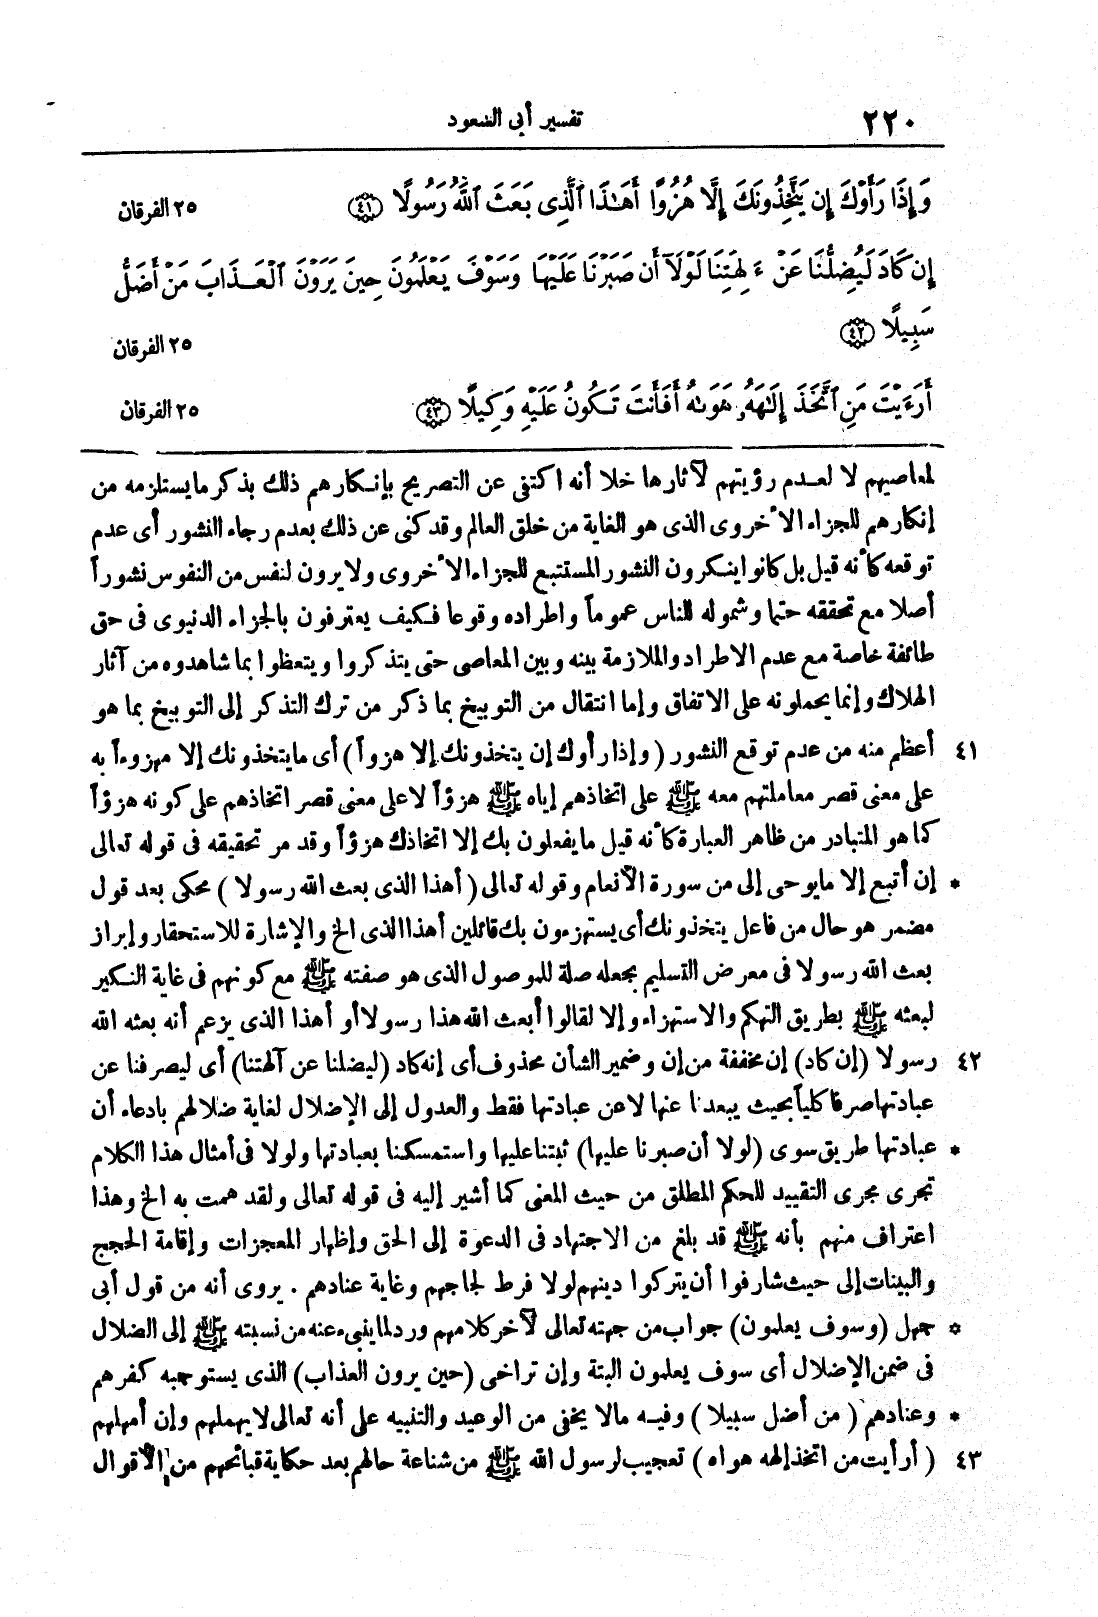 ٢٢٠ تفسير أبى السعود
وَإِذَا رَأَوْكَ إِن يَتَّخِذُونَكَ إِلَّا هُزُوًا أَهَٰذَا ٱلَّذِى بَعَثَ ٱللَّهُ رَسُولًا ﴿٤١﴾ ٢٥ الفرقان
إِن كَادَ لَيُضِلُّنَا عَنْ ءَالِهَتِنَا لَوْلَآ أَن صَبَرْنَا عَلَيْهَا وَسَوْفَ يَعْلَمُونَ حِينَ يَرَوْنَ ٱلْعَذَابَ مَنْ أَضَلُّ
سَبِيلًا ﴿٤٢﴾ ٢٥ الفرقان
أَرَءَيْتَ مَنِ ٱتَّخَذَ إِلَٰهَهُۥ هَوَىٰهُ أَفَأَنتَ تَكُونُ عَلَيْهِ وَكِيلًا ﴿٤٣﴾ ٢٥ الفرقان
لمعاصيهم لا لعدم رؤيتهم لآثارها خلا أنه اكتفى عن التصريح بإنكارهم ذلك بذكر ما يستلزمه من
إنكارهم للجزاء الأخروى الذى هو الغاية من خلق العالم وقد كنى عن ذلك بعدم رجاء النشور أى عدم
توقعه كأنه قيل بل كانوا ينكرون النشور المستتبع للجزاء الأخروى ولا يرون لنفس من النفوس نشوراً
أصلا مع تحققه حتما وشموله للناس عموماً واطراده وقوعا فكيف يعترفون بالجزاء الدنيوى فى حق
طائفة خاصة مع عدم الاطراد والملازمة بينه وبين المعاصى حتى يتذكروا ويتعظوا بما شاهدوه من آثار
الهلاك وإنما يحملونه على الاتفاق وإما انتقال من التوبيخ بما ذكر من ترك التذكر إلى التوبيخ بما هو
٤١ أعظم منه من عدم توقع النشور ( وإذا رأوك إن يتخذونك إلا هزواً ) أى ما يتخذونك إلا مهزوءاً به
على معنى قصر معاملتهم معه ﷺ على اتخاذهم إياه ﷺ هزؤاً لا على معنى قصر اتخاذهم على كونه هزؤاً
كما هو المتبادر من ظاهر العبارة كأنه قيل ما يفعلون بك إلا اتخاذك هزؤاً وقد مر تحقيقه فى قوله تعالى
* إن أتبع إلا ما يوحى إلى من سورة الأنعام وقوله تعالى ( أهذا الذى بعث الله رسولا ) محكى بعد قول
مضمر هو حال من فاعل يتخذونك أى يستهزءون بك قائلين أهذا الذى الخ والإشارة للاستحقار وإبراز
بعث الله رسولا فى معرض التسليم بجعله صلة للموصول الذى هو صفته ﷺ مع كونهم فى غاية النكير
لبعثه ﷺ بطريق التهكم والاستهزاء وإلا لقالوا أبعث الله هذا رسولا أو أهذا الذى يزعم أنه بعثه الله
٤٢ رسولا (إن كاد) إن مخففة من إن وضمير الشأن محذوف أى إنه كاد (ليضلنا عن آلهتنا) أى ليصرفنا عن
عبادتها صرفا كلياً بحيث يبعدنا عنها لا عن عبادتها فقط والعدول إلى الإضلال لغاية ضلالهم بادعاء أن
* عبادتها طريق سوى (لولا أن صبرنا عليها) ثبتنا عليها واستمسكنا بعبادتها ولولا فى أمثال هذا الكلام
تجرى مجرى التقييد للحكم المطلق من حيث المعنى كما أشير إليه فى قوله تعالى ولقد همت به الخ وهذا
اعتراف منهم بأنه ﷺ قد بلغ من الاجتهاد فى الدعوة إلى الحق وإظهار المعجزات وإقامة الحجج
والبينات إلى حيث شارفوا أن يتركوا دينهم لولا فرط لجاجهم وغاية عنادهم . يروى أنه من قول أبى
* جهل (وسوف يعلمون) جواب من جهته تعالى لآخر كلامهم ورد لما ينبىء عنه من نسبته ﷺ إلى الضلال
فى ضمن الإضلال أى سوف يعلمون البتة وإن تراخى (حين يرون العذاب) الذى يستوجبه كفرهم
* وعنادهم ( من أضل سبيلا ) وفيه مالا يخفى من الوعيد والتنبيه على أنه تعالى لا يهملهم وإن أمهلهم
٤٣ ( أرأيت من اتخذ إلهه هواه ) تعجيب لرسول الله ﷺ من شناعة حالهم بعد حكاية قبائحهم من الأقوال